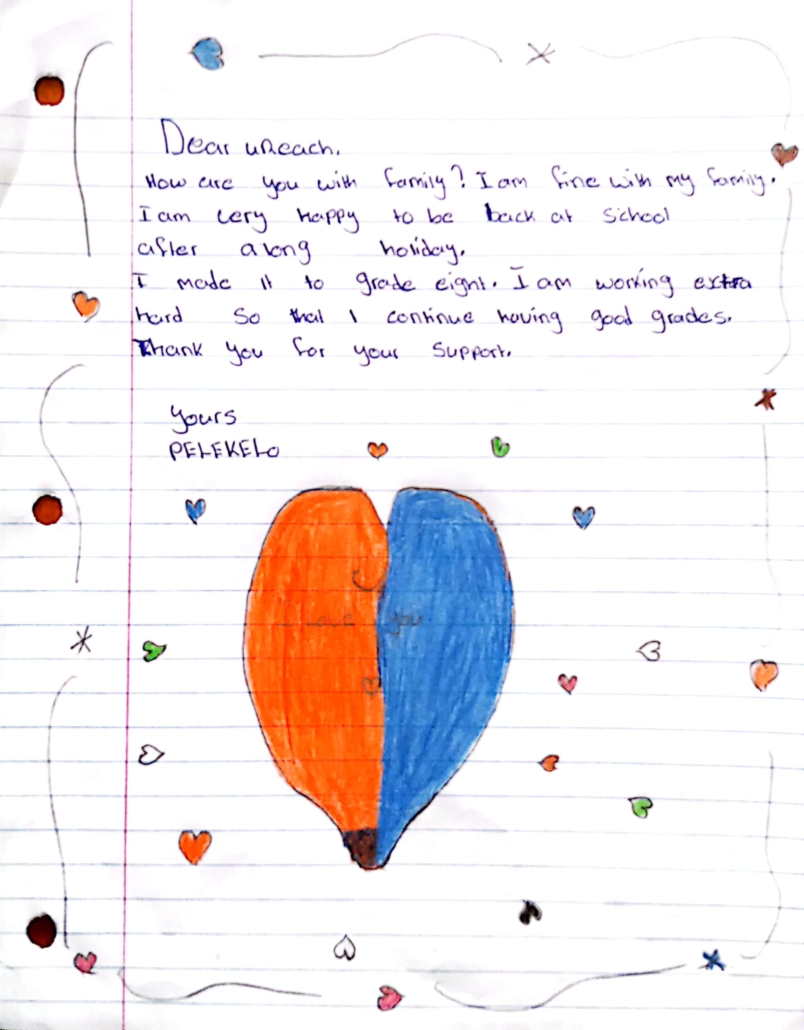 Dear uReach.
How are you with family? I am fine with my family.
I am very happy to be back at school
after a long holiday.
I made it to grade eight. I am working extra
hard so that I continue having good grades.
Thank you for your support.
Yours
PELEKELO
I Love you